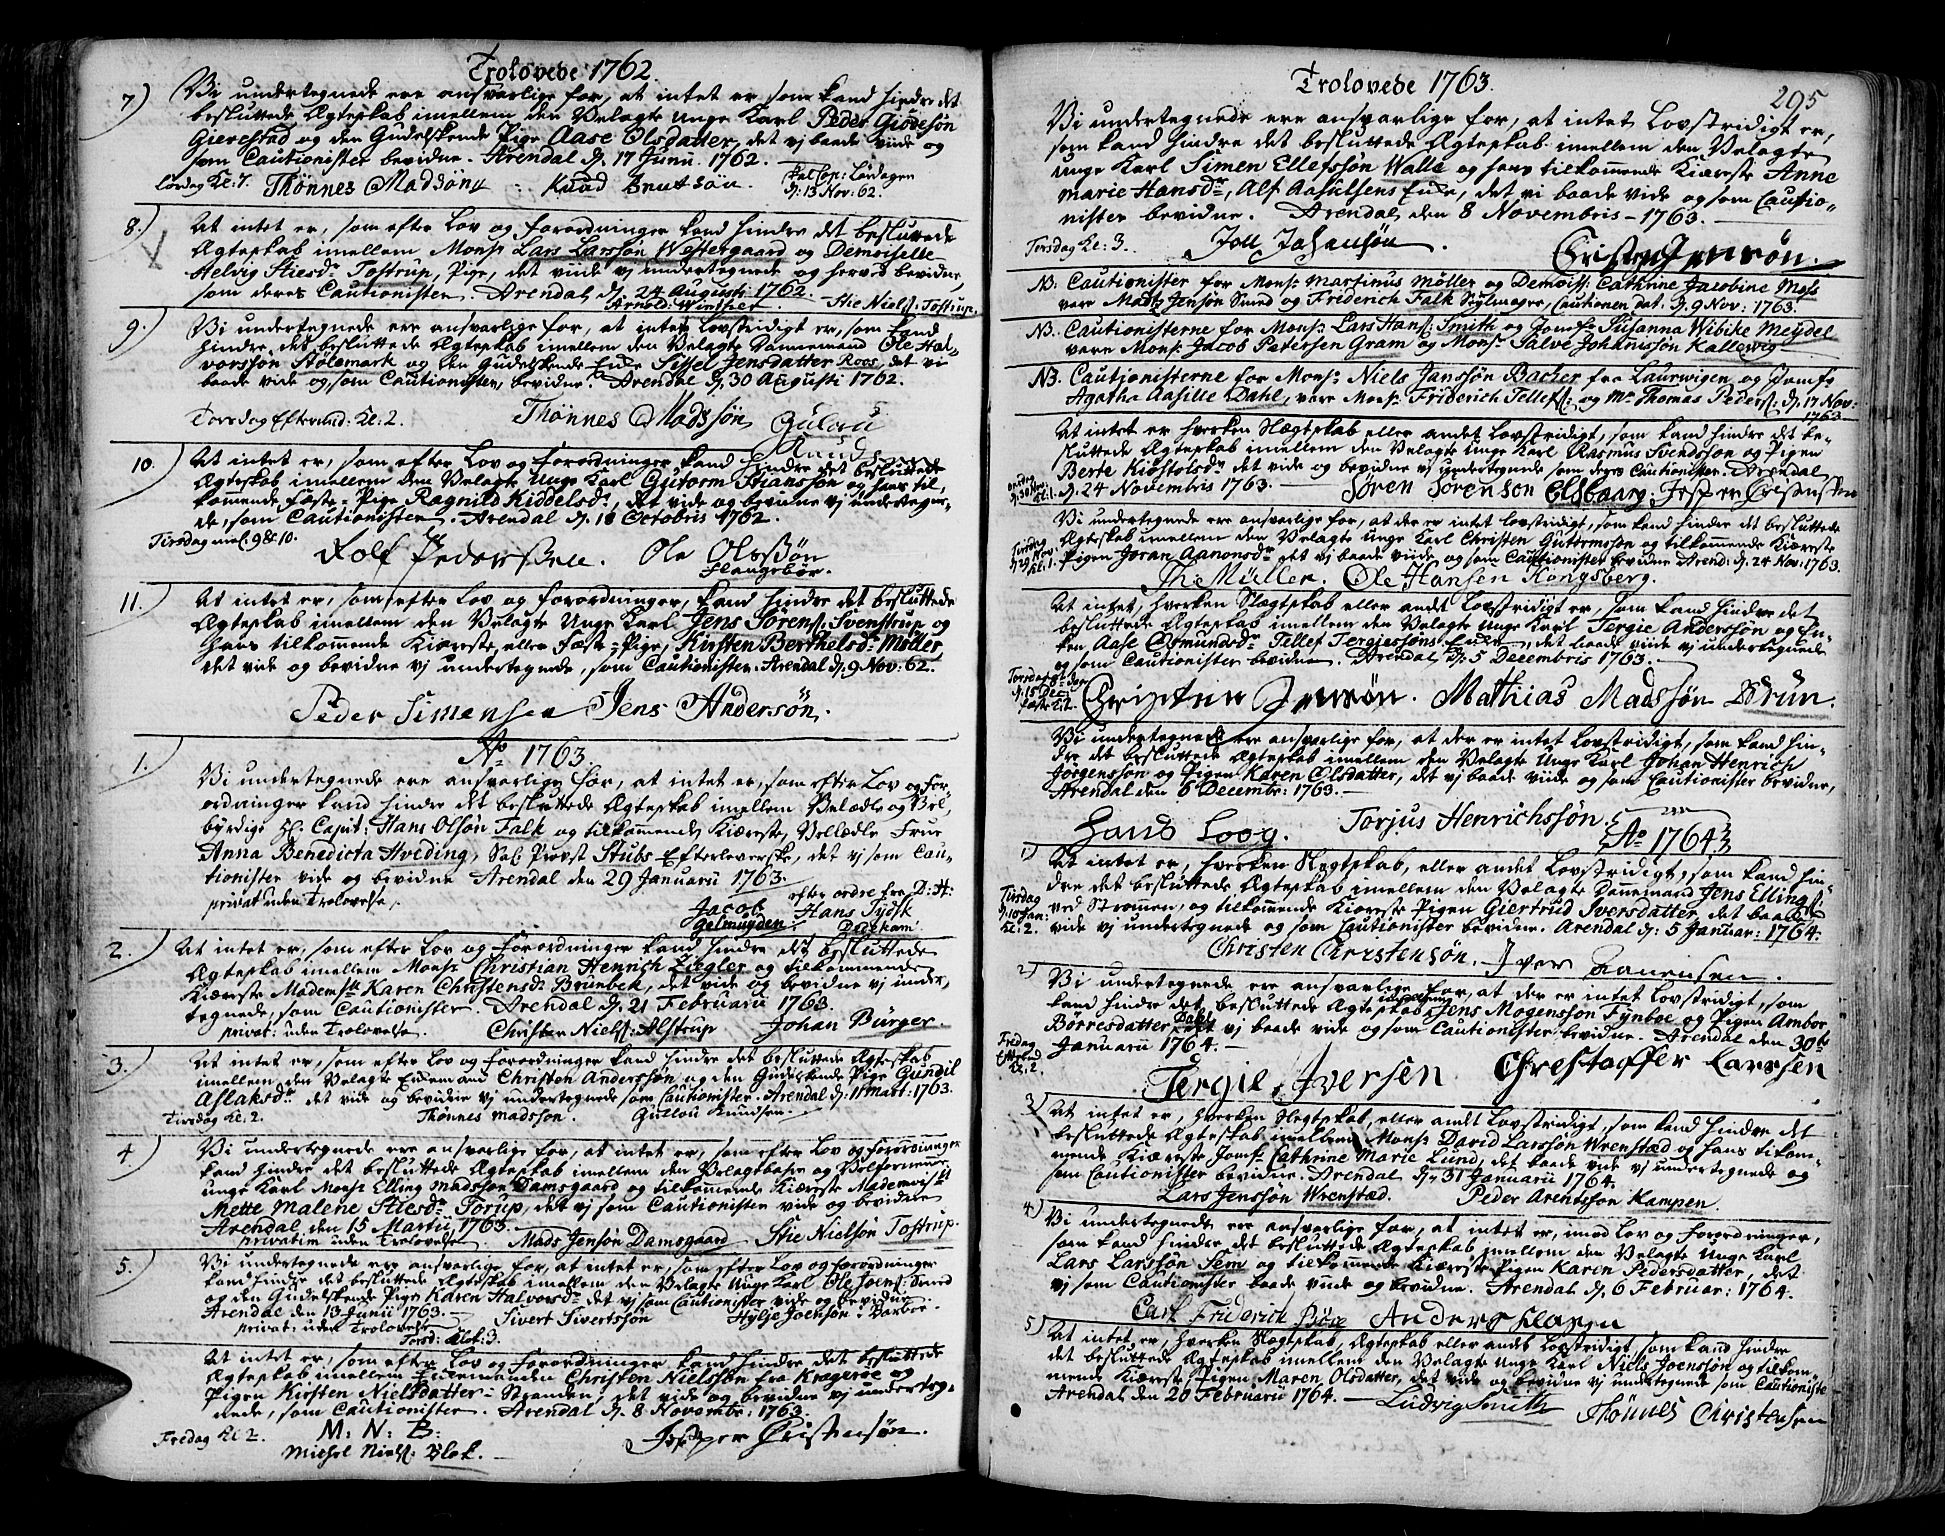 Trolovede 1762.
7) Vi undertegnede ere ansvarlige for, at intet er, som kand hindre det
besluttede Ægteskab imellem den Velagte Unge Karl Peder Giodesøn
Gierestad og den Gudelskende Pige Aase Olsdatter, det vj baade viide og
som Cautionister bevidne. Arendal d. 17 Junii 1762.
Lørdag Kl: 7. Thönnes Madsøn Knud Knutsön
Lørdagen
d: 13 Nov: 62.
8.) At intet er, som efter Lov og Forordninger kand hindre det besluttede
Ægteskab imellem Monsr Lars Larssøn Westergaard og Demoiselle
Helvig Stiesdr Tostrup, Pige, det viide vj undertegnede og herved bevidne,
som deres Cautionister. Arendal d. 24 Augusti 1762.
Arnold Winther Stie Niels: Tostrup.
9.) Vi undertegnede ere ansvarlige for, at intet Lovstridigt er, som kand
hindre det besluttede Ægteskab imellem den Velagte Dannemand Ole Hal-
vorssøn Stølemark og den Gudelskende Enke Sissel Jensdatter Roos, det vi
baade vide og som Cautionister bevidne. Arendal d. 30 Augusti 1762.
Torsdag Eftermid: Kl: 2. Thönnes Madssøn Gulou
Knudsen
10.) At intet er, som efter Lov og Forordninger kand hindre det besluttede
Ægteskab imellem den Velagte Unge Karl Gutorm Stianssøn og hans til-
kommende Fæste-Pige Ragnild Kiddelsdr, det vide og bevidne vj undertegne-
de, som Cautionister. Arendal d. 18 Octobris 1762.
Tirsdag mel. 9 & 10. Rolf Pederssen. Ole Olssøn
Flangebør.
11.) At intet er, som efter Lov og Forordninger, kand hindre det besluttede
Ægteskab imellem den Velagte Unge Karl Jens Sørens: Svenstrup og
hans tilkommende Kiæreste eller Fæste-Pige, Kirsten Berthelsdr Møller
det vide og bevidne vj undertegnede, som Cautionister. Arendal d. 9 Nov. 62.
Peder Simensen Jens Andersön.
Ao 1763
1. Vi undertegnede ere ansvarlige for, at intet er, som efter Lov og For-
ordninger kand hindre det besluttede Ægteskab imellem Velædle og Vel-
byrdige Hr. Capit: Hans Olsøn Falk og tilkommende Kiæreste, Velædle Frue
Anna Benedicta Hveding, Sal. Provst Stubs Efterleverske, det vj som Cau-
tionister vide og bevidne Arendal den 29 Januarii 1763.
privat uden Trolovelse. efter ordre fra D: H:
Jacob Hans Tydsk
Gelmuyden. Dedekam.
2. At intet er, som efter Lov og Forordninger kand hindre det besluttede
Ægteskab imellem Monsr Christian Henrich Ziegler og tilkommende
Kiæreste Mademslle Karen Christensdr Brunbek, det vide og bevidne vj under-
tegnede, som Cautionister. Arendal d. 21 Februarii 1763.
privat: uden Trolovelse. Christen Niels: Alstrup Johan Bürger.
3. At intet er, som efter Lov og Forordninger kand hindre det besluttede Ægteskab
imellem den Velagte Enkemand Christen Anderssøn og den Gudelskende Pige Gundil
Aslaksdr det vide og bevidne vj undertegnede som Cautionister. Arendal d. 11 Mart: 1763.
Tirsdag Kl. 2. Thönnes Madsson. Gullou Knudsen.
4. Vi undertegnede ere ansvarlige for, at intet er, som efter Lov og Forordninger
kand hindre det besluttede Ægteskab imellem den Velagtbare og Velfornemme
unge Karl Monsr Elling Madssøn Damsgaard og tilkommende Kiæreste Mademoislle
Mette Malene Stiesdr Torup, det vj som Cautionister vide og bevidne
Arendal den 15 Martii 1763.
privatim uden Trolovelse Mads Jensøn Damsgaard Stie Nielsön Tostrup.
5. Vi undertegnede ere ansvarlige for, at intet er, som efter Lov og Forordninger
kand hindre det besluttede Ægteskab imellem den Velagte Unge Karl Ole Joens: Smed
og den Gudelskende Pige Karen Halvorsdr det vj som Cautionister vide og bevidne.
Arendal den 13 Junii 1763.
privat: uden Trolovelse Sivert Sivertssøn
Torsd: Klok: 3.
At intet er, som efter Lov og Forordninger kand hindre det besluttede
Ægteskab imellem Enkemanden Christen Nielssøn fra Kragerøe og
Pigen Kirsten Nielsdatter Stranden, det vide og bevidne vj underteg-
nede, som Cautionister. Arendal d. 8 Novembr: 1763.
Fredag Kl 2. M: N: B: Jesper Cristensøn.
Michel Niels: Blok.
Trolovede 1763.
295
Vi undertegnede ere ansvarlige for, at intet Lovstridigt er,
som kand hindre det besluttede Ægteskab imellem den Velagte
unge Karl Simen Ellefssøn Walle og hans tilkommende Kiæreste Anne
Marie Hansdr, Alf Aasulsens Enke, det vi baade vide og som Cautio-
nister bevidne. Arendal den 8 Novembris 1763.
Torsdag Kl: 3. Joll Johansön. Cristen Jensøn.
NB. Cautionister for Monsr Martinus Møller og Demoiss: Cathrine Jacobine Moss
vare Madz Jensøn Smed og Friderich Falk Seylmager, Cautionen dat: d. 9 Nov: 1763.
NB. Cautionisterne for Monsr Lars Hans: Smith og Jomfr Susanna Wibike Meydel
vare Monsr Jacob Petersen Gram og Monsr Salve Johanissøn Kallewig
NB. Cautionisterne for Monsr Niels Janssøn Bacher fra Laurwigen og Jomfr
Agatha Aasille Dahl, vare Monsr Friderich Tellefs: og Mr Thomas Peders: d. 17 Nov:
1763.
At intet er, hverken Slægtskab eller andet Lovstridigt, som kand hindre det be-
sluttede Ægteskab imellem den Velagte Unge Karl Rasmus Svendssøn og Pigen
Berte Kiøstolsdr det vide og bevidne vj undertegnede som deres Cautionister. Arendal
d. 24 Novembris 1763. Søren Sörenson Elsbaarg. Jesper Cristensen
Onsdag d. 30 Nov: Kl: 1.
Vi undertegnede ere ansvarlige for, at der er intet Lovstridigt, som kand hindre det besluttede
Ægteskab imellem den Velagte Unge Karl Christen Gutormssøn og tilkommende Kiæreste
Pigen Joran Aanonsdr det vj baade vide og som Cautionister bevidne Arend: d. 24 Nov: 1763.
Tirsdag d. 29 Nov. Kl: 1. Ths Müller. Ole Hansen Kongsberg.
At intet, hverken Slægtskab eller andet Lovstridigt er, som kand hindre det
besluttede Ægteskab imellem den Velagte Unge Karl Tergie Anderssøn og En-
ken Aase Osmundsdr Tellef Tergiessøns Enke, det baade vide vj undertegnede
og som Cautionister bevidne. Arendal d. 5 Decembris 1763.
Torsdag d. 15 Dec: Kl: 2. Christen Jensön. Mathias Madssøn Brun.
Vi undertegnede ere ansvarlige for, at der er intet Lovstridigt, som kand hin-
dre det besluttede Ægteskab imellem den Velagte Unge Karl Johan Henrich
Jørgenssøn og Pigen Karen Olsdatter, det vj baade viide og som Cautionister bevidne,
Arendal den 6 Decembr: 1763.
Hans Loog. Torjus Henrichssön.
Ao 1764
1) At intet er, hverken Slegtskab, eller andet Lovstridigt, som kand hin-
dre det besluttede Ægteskab imellem den Velagte Dannemand Jens Ellings:
ved Strømmen, og tilkommende Kiæreste Pigen Giertrud Iversdatter, det baade
vide vj undertegnede og som Cautionister bevidne. Arendal d: 5 Januar: 1764.
Tirsdag d. 10 Jan: Kl: 2. Christen Christensön. Iver Aanensen.
2) Vi undertegnede ere ansvarlige for, at der er intet Lovstridigt, som
kand hindre det besluttede Ægteskab imellem Jens Mogenssøn Fynboe og Pigen Ambor
Børresdatter Dahl, det vj baade vide og som Cautionister bevidne. Arendal den 30te
Januarii 1764.
Fredag Efterm: Kl. 2. Tergie Aversen Chrestoffer Larssen
3) At intet er, hverken Slegtskab, eller andet Lovstridigt, som kand hindre det
besluttede Ægteskab imellem Monsr David Larssøn Wrenstad og hans tilkom-
mende Kiæreste Jomfr Cathrine Marie Lund, det baade vide vj undertegnede og
som Cautionister bevidne. Arendal d. 31 Januarii 1764.
Lars Jenssøn Wrenstad. Peder Arentssøn Kampen.
4) Vi undertegnede ere ansvarlige for, at intet er, imod Lov og Forordninger,
som kand hindre det besluttede Ægteskab imellem den Velagte Unge Karl
Lars Larssøn Sem og tilkommende Kiæreste Pigen Karen Pedersdatter, det
vj som Cautionister baade viide og bevidne. Arendal d. 6 Februar: 1764.
Carl Friderich Böre Anders Clasen
5) At intet er, hverken Slægtskab, Ægteskab eller andet Lovstridigt, som kand hindre
det besluttede Ægteskab imellem den Velagte Unge Karl Niels Joenssøn og tilkom-
mende Kiæreste Pigen Maren Olsdatter, det vide og bevidne vj undertegnede som Cautionister
Arendal den 20 Februarii 1764. Ludvig Smith Thönnes Christensen